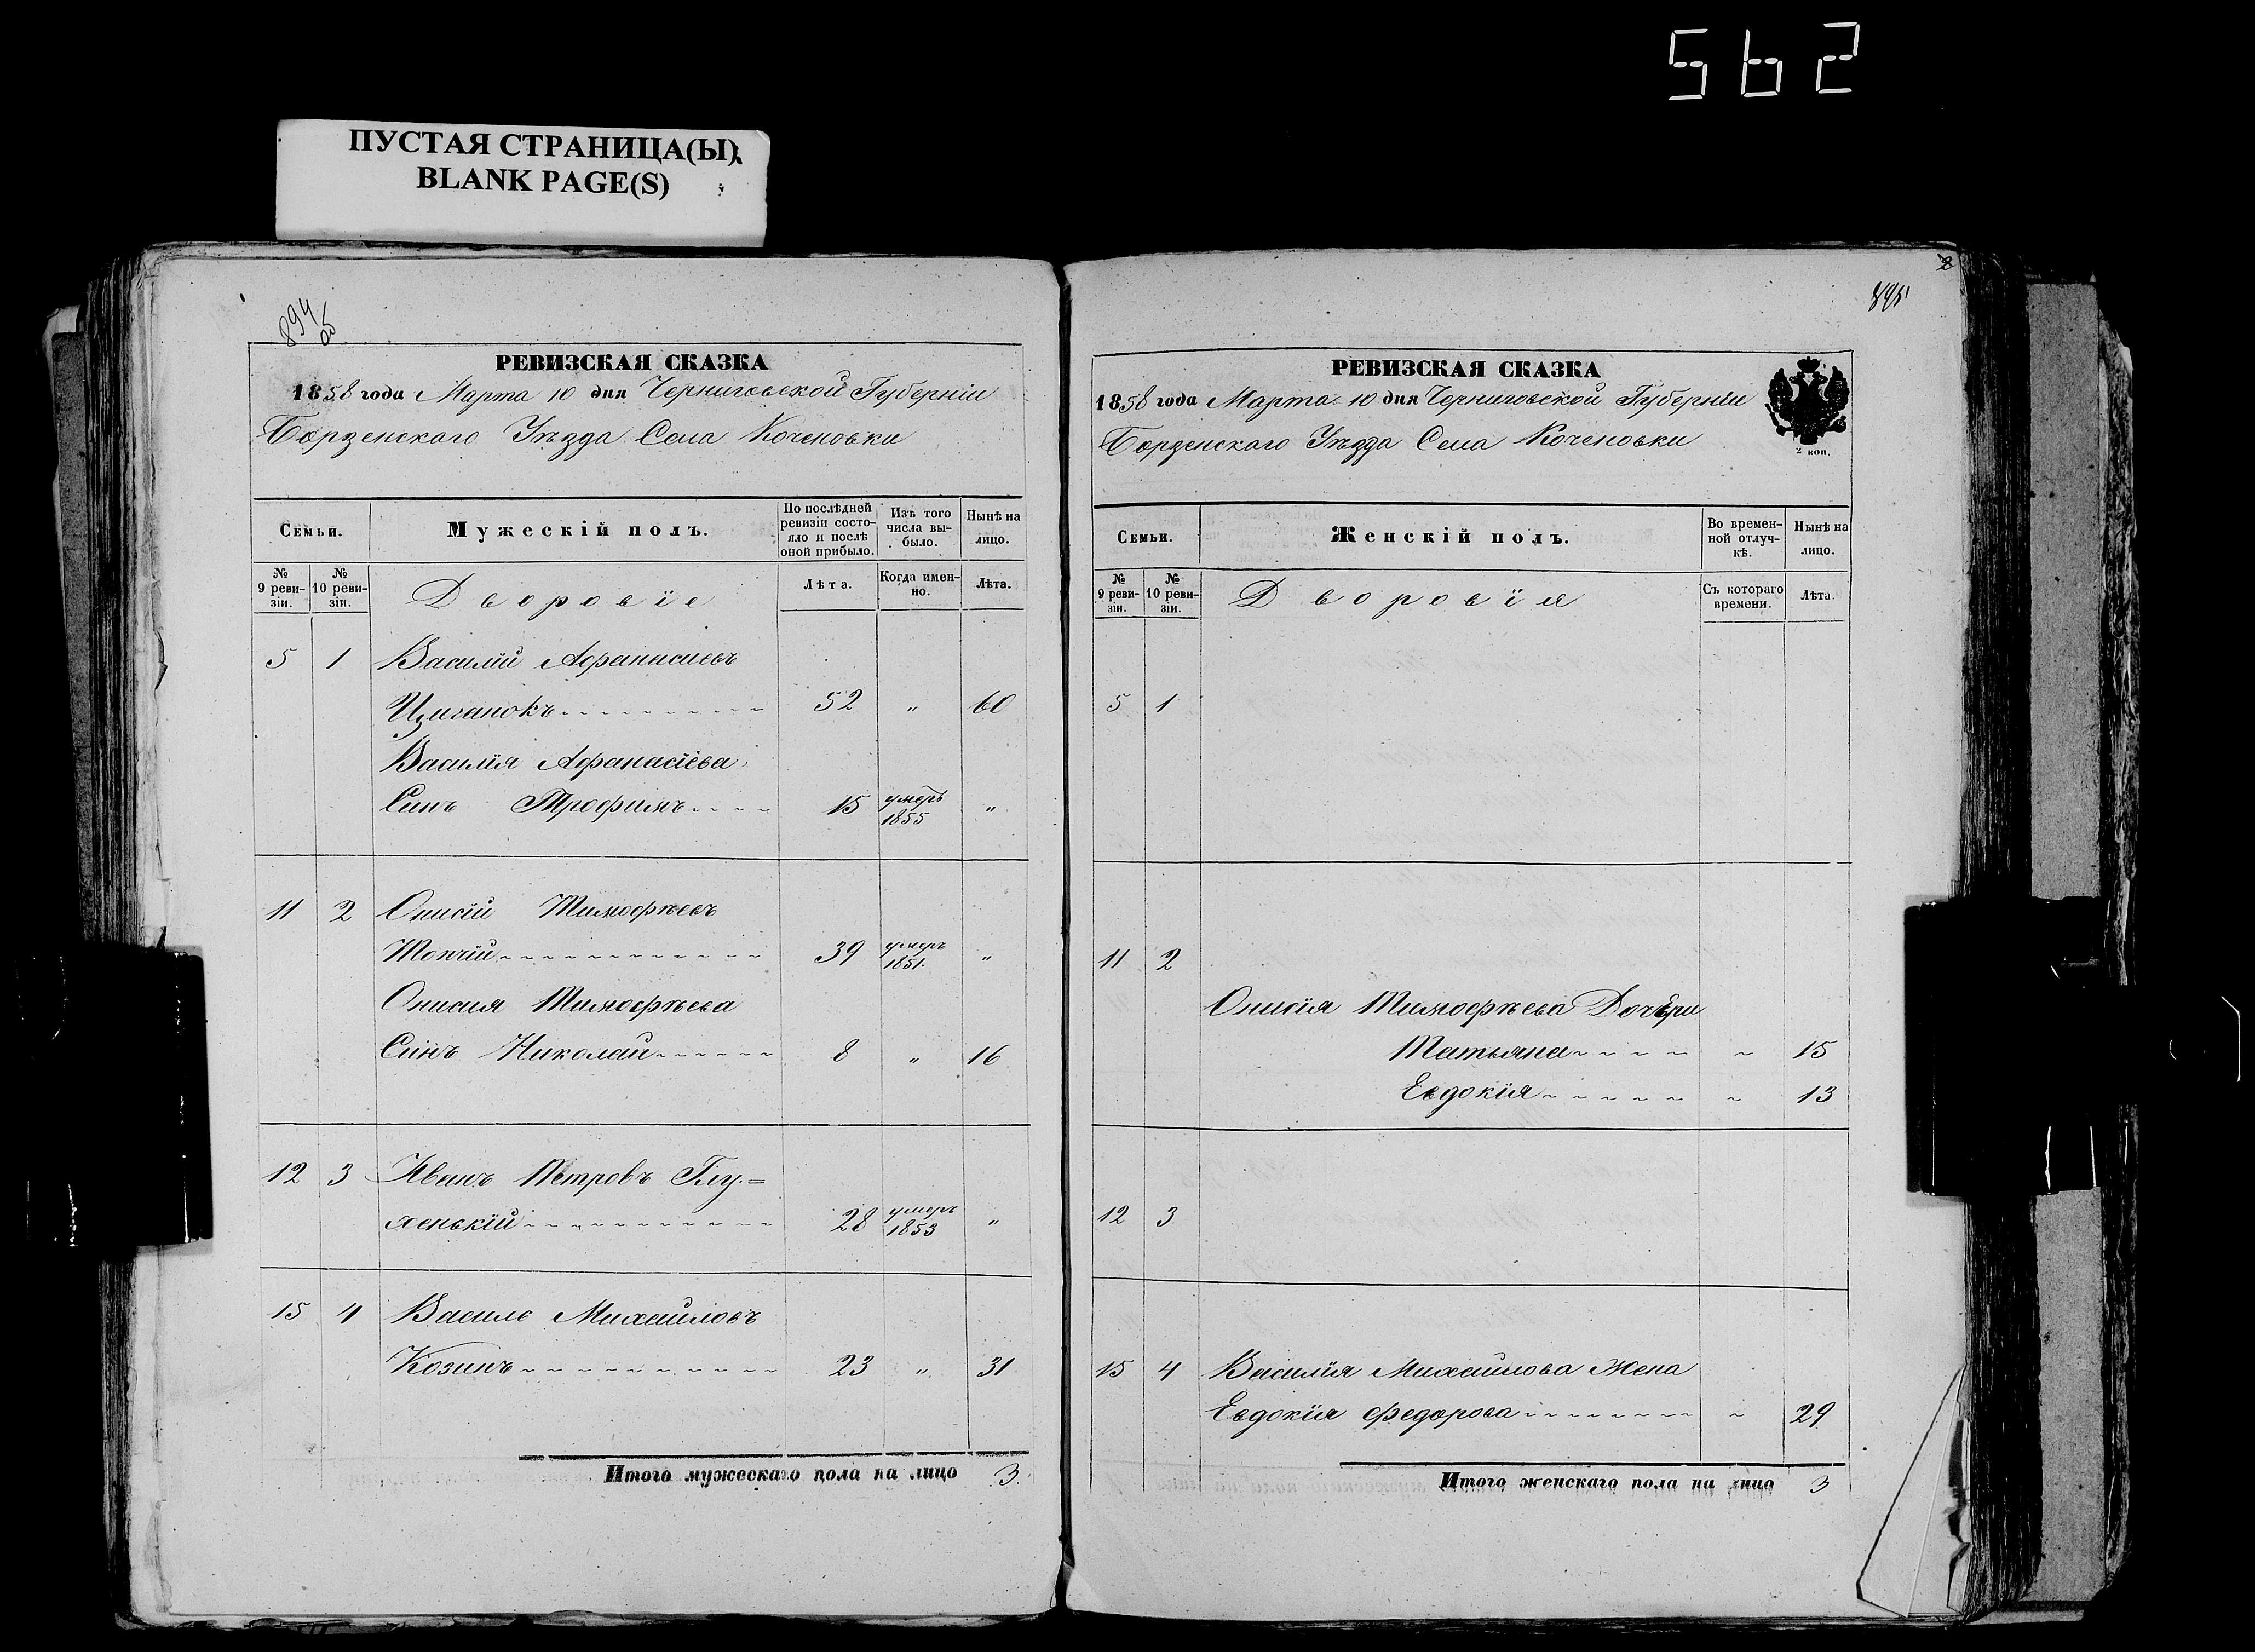 562
ПУСТАЯ СТРАНИЦА(Ы)
BLANK PAGE(S)
894 об
РЕВИЗСКАЯ СКАЗКА
1858 года Марта 10 дня Черниговской Губерніи
Борзенскаго Уѣзда Села Коченовки
Семьи.
Мужескій полъ.
По послѣдней ревизіи состояло и послѣ оной прибыло.
Изъ того числа выбыло.
Нынѣ на лицо.
№ 9 ревизіи.
№ 10 ревизіи.
Дворовіе
Лѣта.
Когда именно.
Лѣта.
5 1 Василій Афанасиевъ
Циганокъ 52 " 60
Василія Афанасіева
Синъ Трофимъ 15 умеръ 1855 "
11 2 Онисій Тимофѣевъ
Топчій 39 умеръ 1851. "
Онисия Тимофѣева
Синъ Николай 8 " 16
12 3 Иванъ Петровъ Глу=
хенькій 28 умеръ 1853 "
15 4 Василе Михайловъ
Козинъ 23 " 31
Итого мужескаго пола на лицо 3.
8
895
РЕВИЗСКАЯ СКАЗКА
1858 года Марта 10 дня Черниговской Губерніи
Борзенскаго Уѣзда Села Коченовки
2 коп.
Семьи.
Женскій полъ.
Во временной отлучкѣ.
Нынѣ на лицо.
№ 9 ревизіи.
№ 10 ревизіи.
Дворовія
Съ котораго времени.
Лѣта.
5 1
11 2
Онисія Тимофѣева Дочѣри
Татьяна 15
Евдокія 13
12 3
15 4 Василія Михайлова Жена
Евдокія Федорова 29
Итого женскаго пола на лицо 3